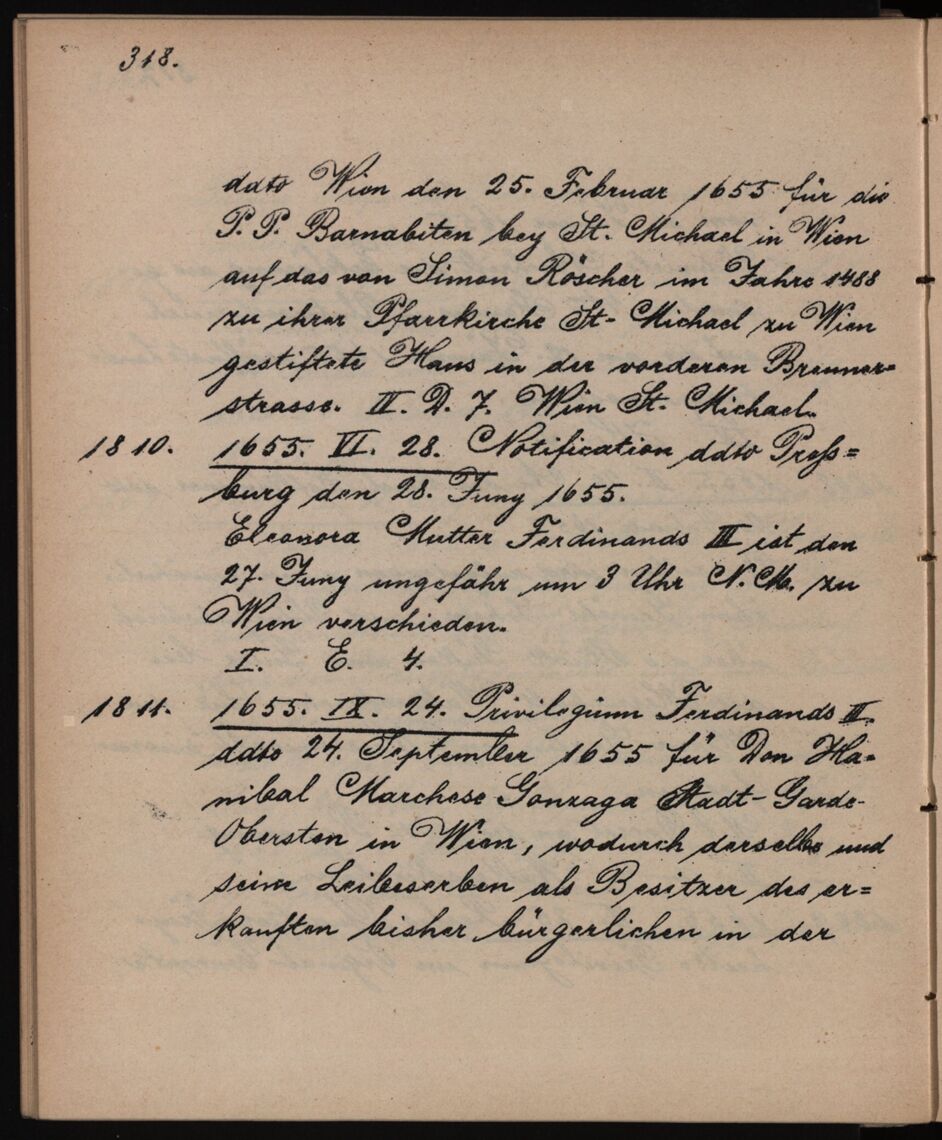 318.
ddto Wien den 25. Februar 1655 für die
P. P. Barnabiten bey St. Michael in Wien
auf das von Simon Röscher im Jahre 1488
zu ihrer Pfarrkirche St- Michael zu Wien
gestiftete Haus in der vorderen Brenner=
strasse. II. D. 7. Wien St. Michael.
1810. 1655. VI. 28. Notification ddto Preß=
burg den 28. Juny 1655.
Eleonora Mutter Ferdinands III ist den
27. Juny ungefähr um 3 Uhr N. M. zu
Wien verschieden.
I. E. 4.
1811. 1655. IX. 24. Privilegium Ferdinands III.
ddto 24. September 1655 für Don Ha=
nibal Marchese Gonzaga Stadt-Garde-
Obersten in Wien, wodurch derselbe und
seine Leibeserben als Besitzer des er=
kauften bisher bürgerlichen in der